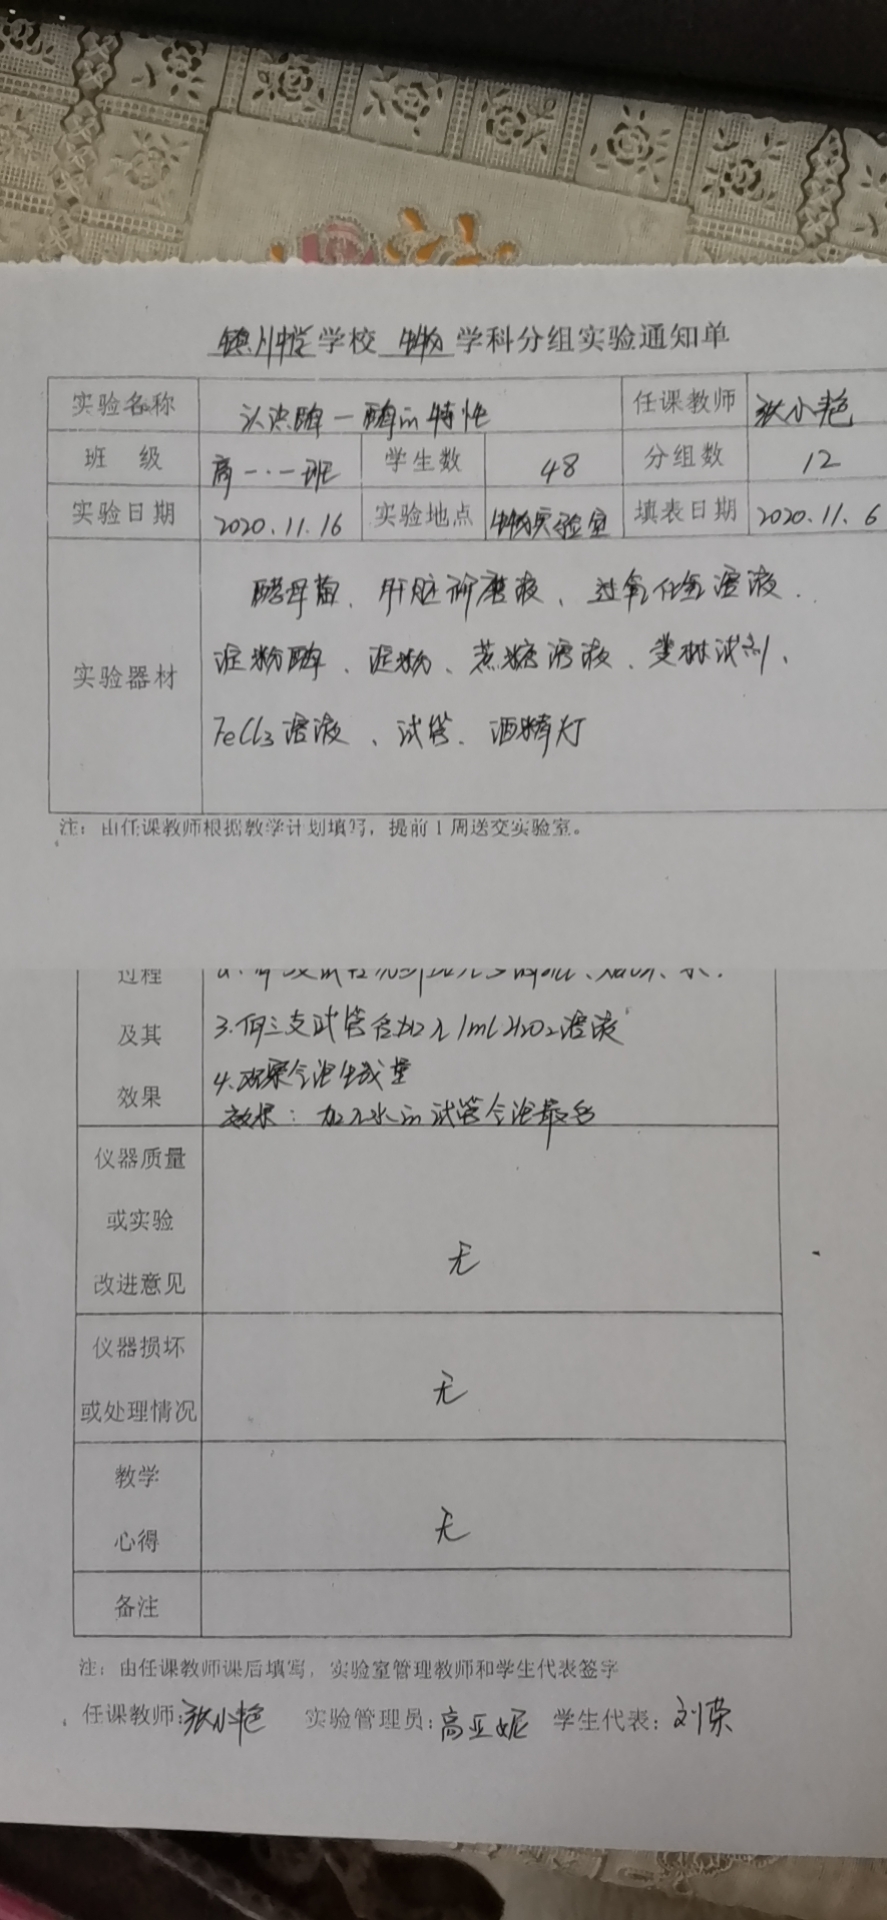 镇川中学学校 生物 学科分组实验通知单
实验名称 认识酶—酶的特性 任课教师 张小艳
班 级 高一·一班 学生数 48 分组数 12
实验日期 2020.11.16 实验地点 生物实验室 填表日期 2020.11.6
酵母菌、肝脏研磨液、过氧化氢溶液、
淀粉酶、淀粉、蔗糖溶液、斐林试剂、
实验器材
FeCl3溶液、试管、酒精灯
注：由任课教师根据教学计划填写，提前1周送交实验室。
过程
及其 3.向三支试管各加入1ml H2O2溶液
4.观察气泡生成量
效果 效果：加入水的试管气泡最多
仪器质量
或实验
无
改进意见
仪器损坏
无
或处理情况
教学
无
心得
备注
注：由任课教师课后填写，实验室管理教师和学生代表签字
任课教师：张小艳 实验管理员：高亚妮 学生代表：刘荣